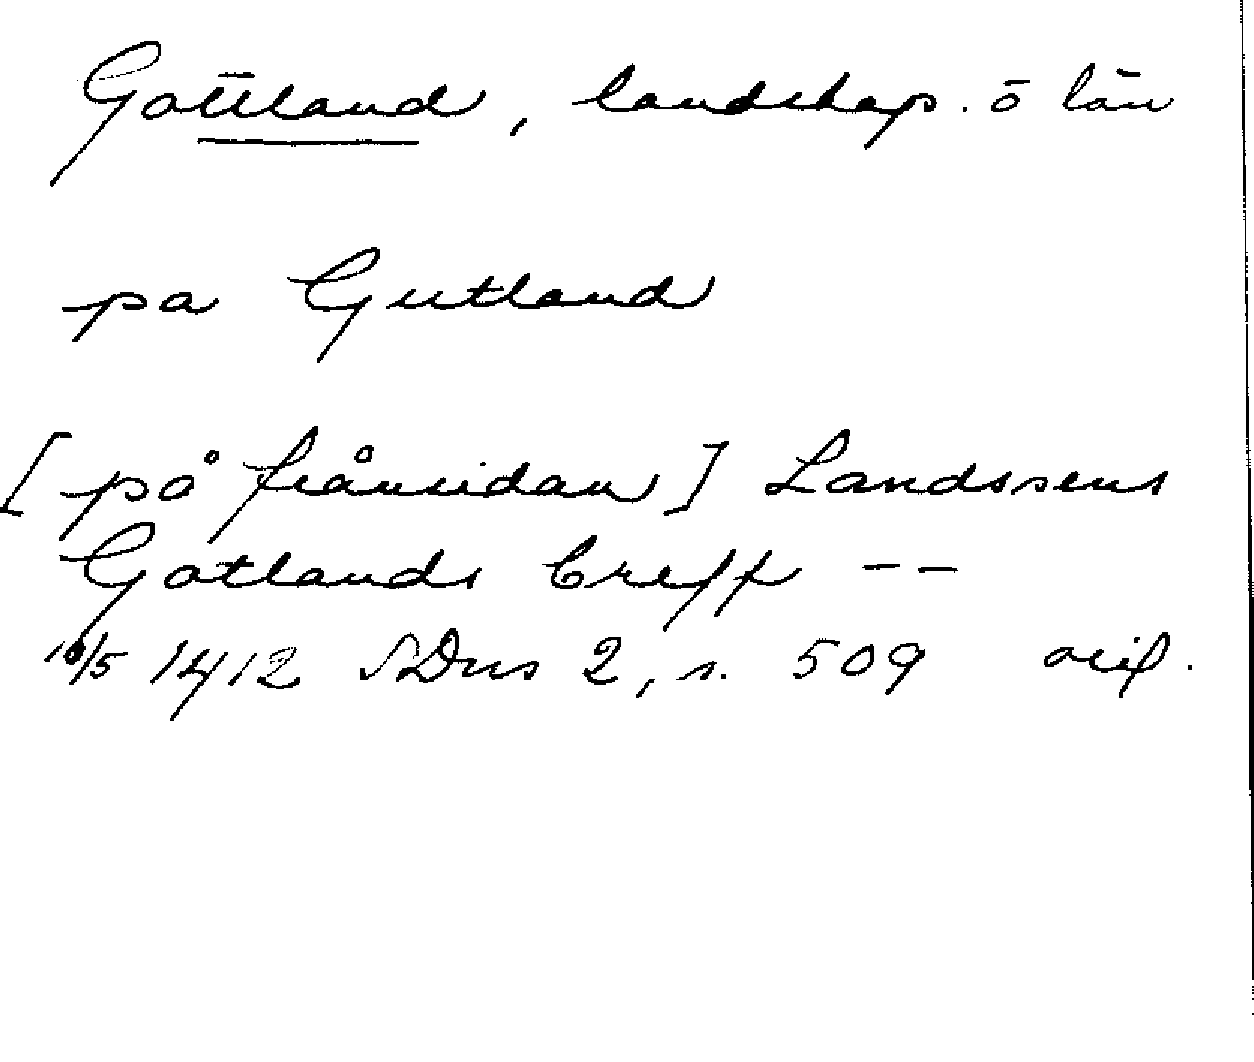 Gottland, landskap. o län
pa Gutland
[på frånsidan] Landssens
Gotlands breff --
10/5 1412 SDns 2, s. 509 orig.